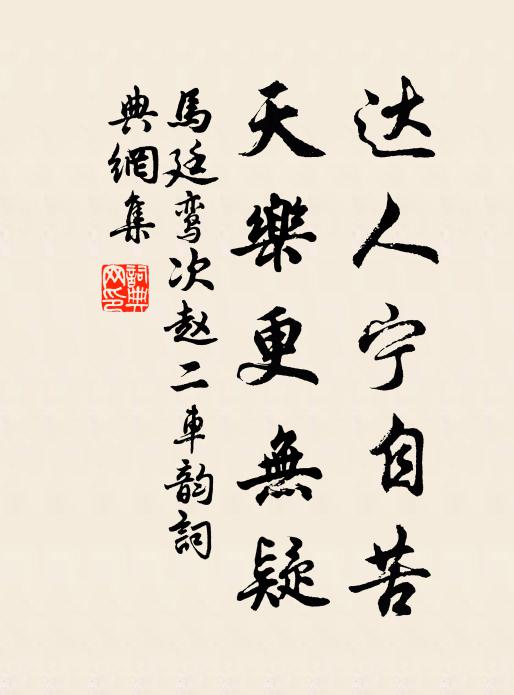 达人宁自苦
天樂更無疑
馬廷鸾次赵二車韵詞
典網集
詞典网印